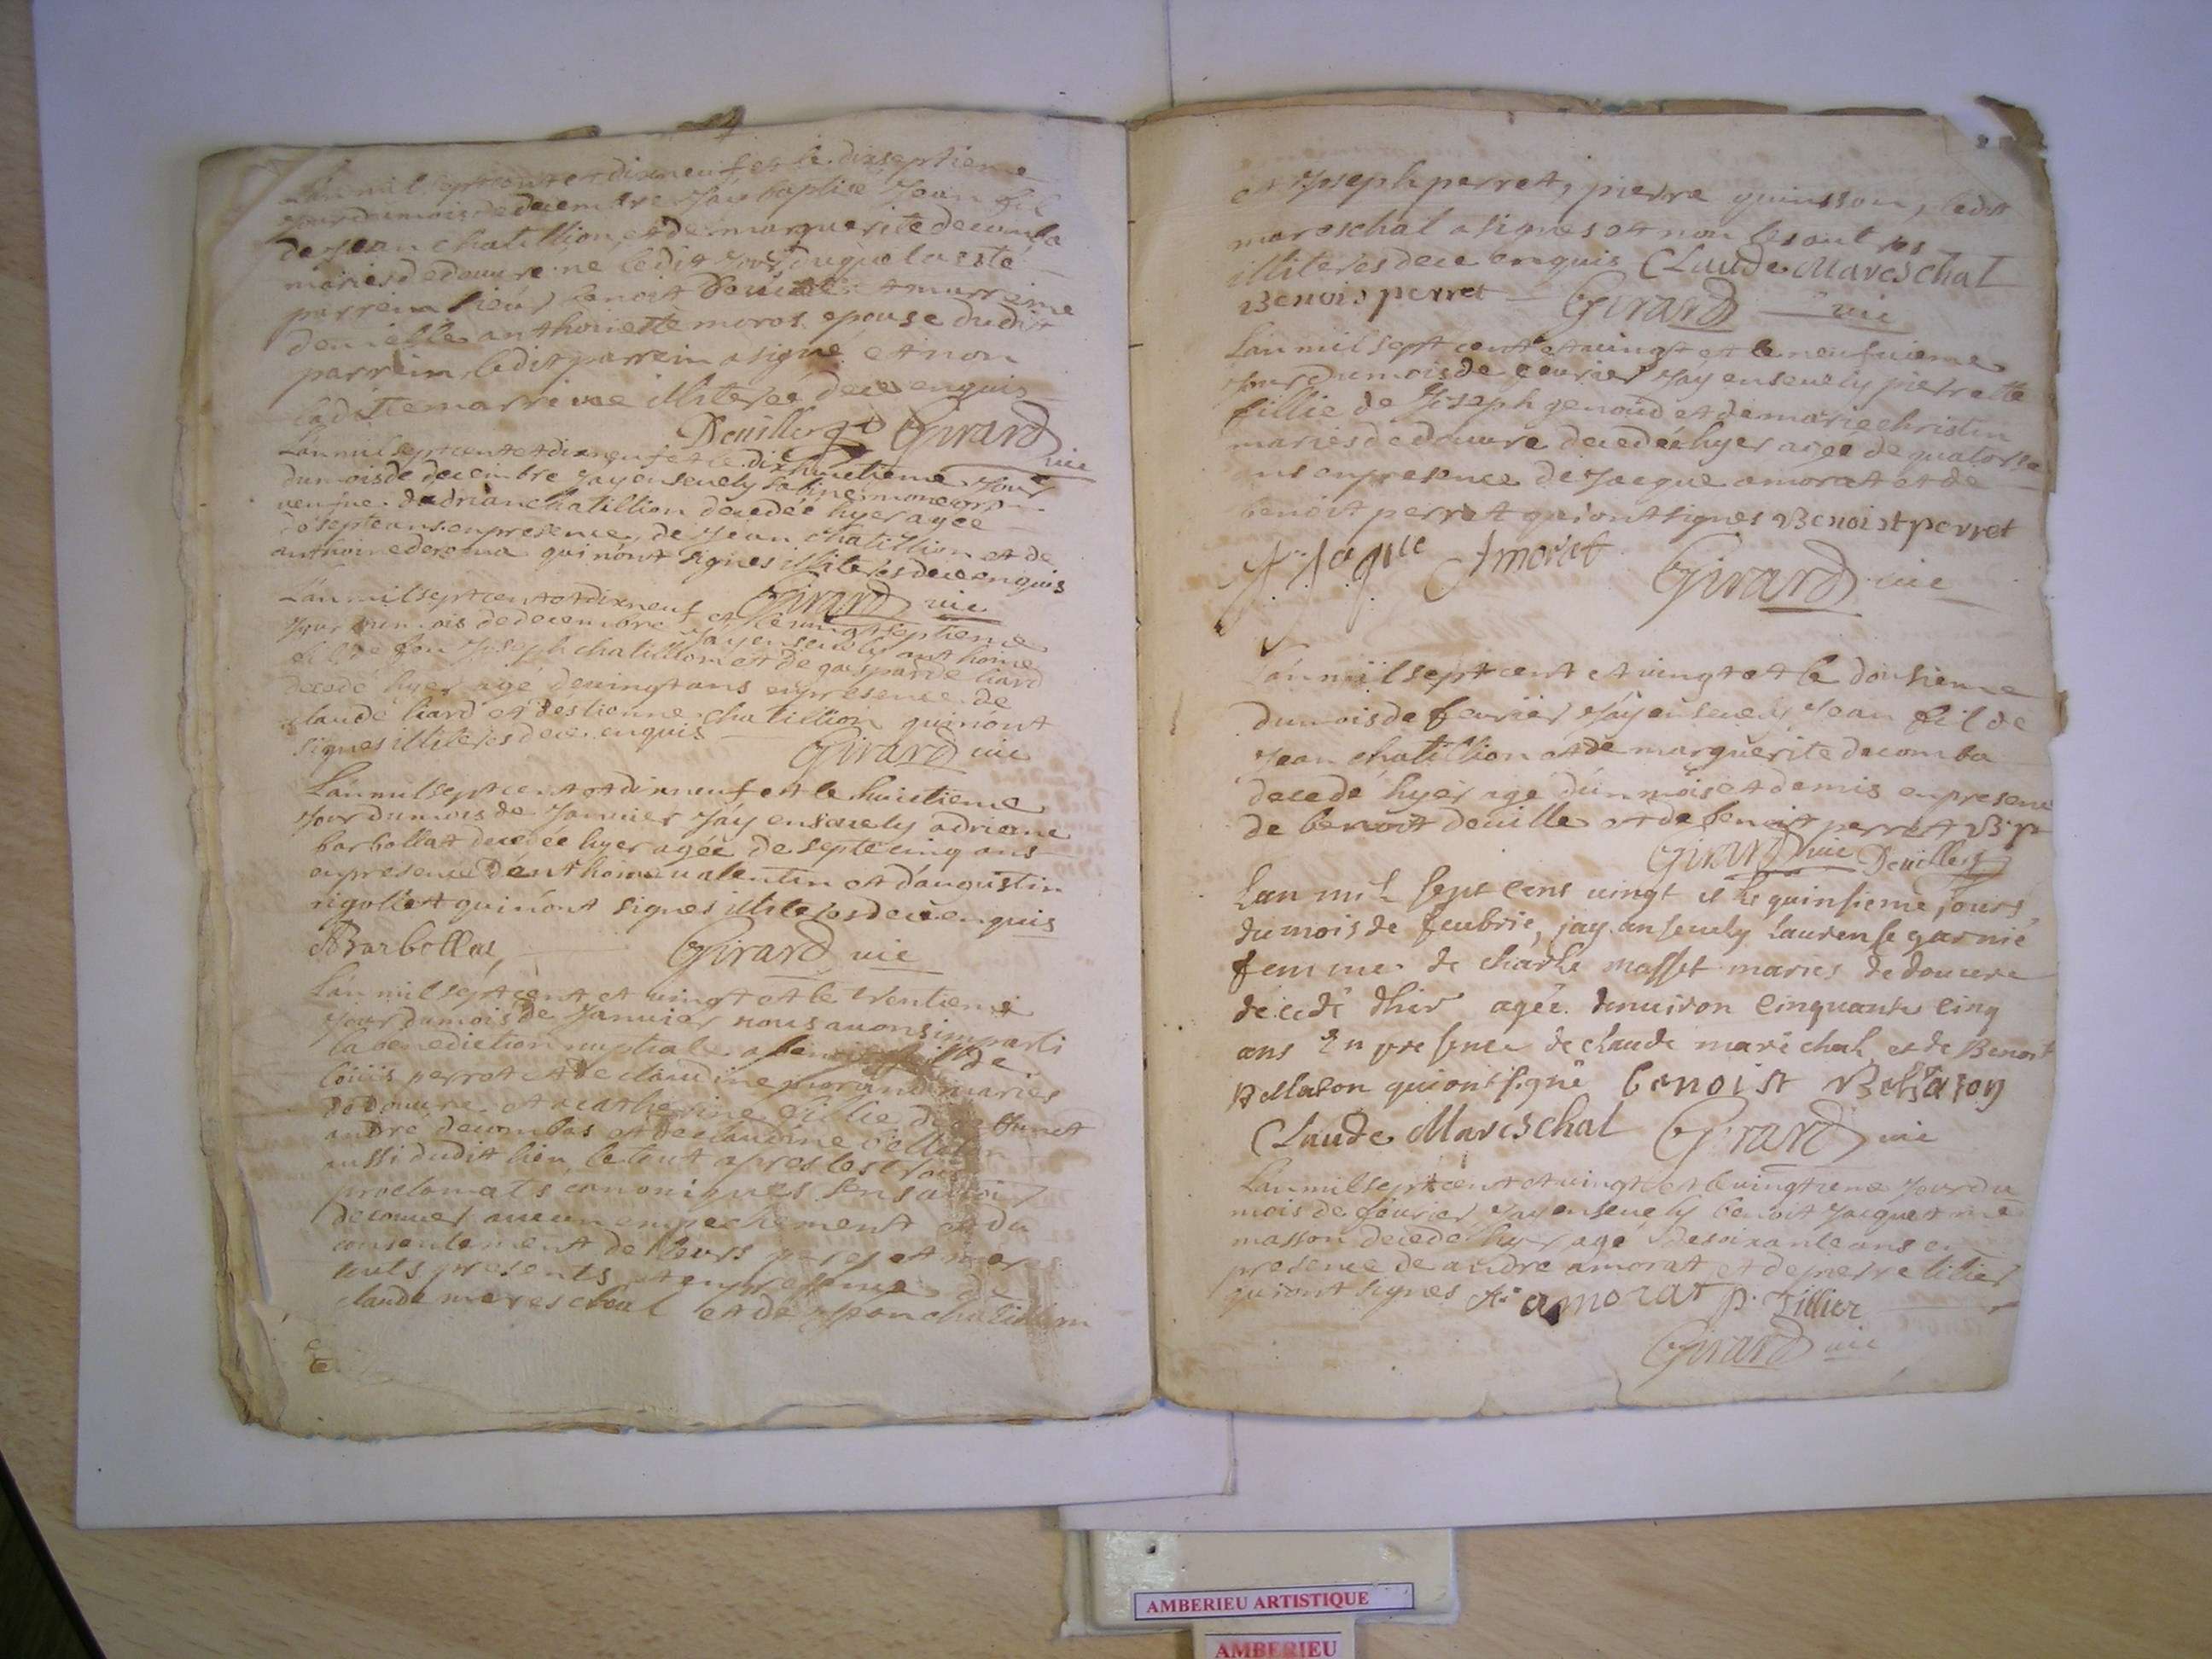 Lan mil sept cent et dixneuf et le dixseptieme
jour du mois de decembre Jay baptisé Jean fil
de Jean chatillion, et de marguerite decomba
mariés de douvre né ledit jour duquel a esté
parrein sieur benoit Deville et marreine
demielle anthoinette moros epouse dudit
parrein, ledit parrein a signé et non
ladite marreine illiterée de ce enquis
Deuillers Girard vic
Lan mil sept cent et dixneuf et le dixhuictieme jour
du mois de decembre jay ensevely sabine
veufve dadrian chatillion decedée hyer agée
de septe ans en presence, de Jean chatillion et de
anthoine qui n'ont signés illiterés de ce enquis
Girard vic
Lan mil sept cent et dixneuf et le vingtseptieme
jour du mois de decembre Jay ensevely anthoine
fil de feu Joseph chatillion et de gasparde liard
decedé hyer agé de vingt ans en presence de
claude liard et destienne chatillion qui n'ont
signés illiterés de ce enquis
Girard vic
Lan mil sept cent et dixneuf et le huictieme
jour du mois de Janvier Jay ensevely adriane
barbollat decedée hyer agée de septe cinq ans
en presence d'anthoine valentin et d'augustin
rigollet qui n'ont signés illiterés de ce enquis
Barbollat, Girard vic
Lan mil sept cent et vingt et le trentieme
jour du mois de Janvier nous avons imparti
la benediction nuptiale a benoit fil de
Louis perret et de claudine mariés
de douvre et a catherine fillie de
andré decombas et de claudine
aussi dudit lieu, le tout apres les trois
proclamats canoniques sens avoir
decouvert aucun empechement et du
consentement de leurs peres et meres
presents et en presence de
claude mareschal et de Jean chatillion
et Joseph perret, pierre guinsson, ledit
mareschal a signés et non les aut res
illiterés de ce enquis Claude Mareschal
Benois perret Girard vic
Lan mil sept cent et vingt et le neufvieme
jour du mois de fevrier Jay ensevely pierrette
fillie de Joseph genoud et de marie christin
mariés de douvre decedée hyer agée de quatorse
ans en presence de Jacque amorat et de
benoit perret qui ont signés Benoist perret
Jaque Amorat Girard vic
Lan mil sept cent et vingt et le dousieme
du mois de fevrier Jay ensevely Jean fil de
Jean chatillion et de marguerite decomba
decedé hyer agé d'un mois et demis en presence
de benoit deville et de benoit perret B p
Girard vic Deuillers
Lan mil sept cens vingt et le quinsieme jours
du mois de feubrie, jay ansevely Laurense garnié
femme de charle masset maries de douvre
decedé dhier agée denviron cinquante cinq
ans En presence de claude maréchal et de Benoit
Bellaton qui ont signé benoist Bellaton
Claude Mareschal Girard vic
Lan mil sept cent et vingt et le vingtieme jour du
mois de fevrier Jay ensevely benoit Jacquet me
masson decedé hyer agé de soixante ans en
presence de andre amorat et de pierre tilier
qui ont signés A amorat p. Tillier
Girard vic
AMBERIEU ARTISTIQUE
AMBERIEU